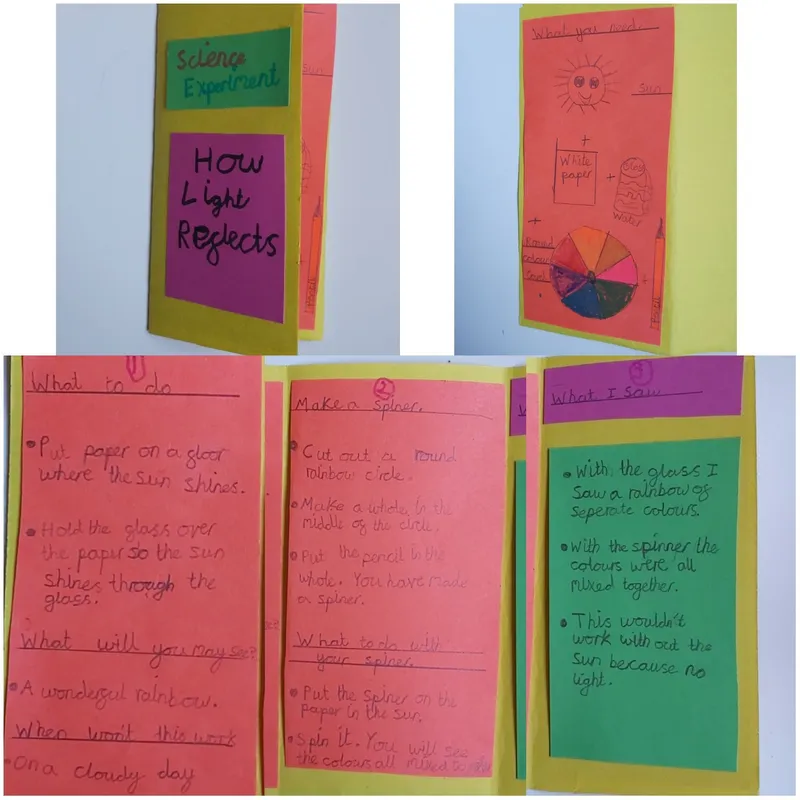 Science
Experiment
How
Light
Reflects
Sun
What you need.
Sun
+
White
paper
+
Glass
Water
+
Round
colour
+
Pencil
1
What to do
Put paper on a floor
where the sun shines.
Hold the glass over
the paper so the sun
shines through the
glass.
What will you may see?
A wonderful rainbow.
When won't this work
On a cloudy day
2
Make a spiner.
Cut out a round
rainbow circle.
Make a whole in the
middle of the circle.
Put the pencil in the
whole. You have made
a spiner.
What to do with
your spiner.
Put the spiner on the
paper in the sun.
Spin it. You will see
the colours all mixed
3
What I saw
With the glass I
saw a rainbow of
seperate colours.
With the spinner the
colours were all
mixed together.
This wouldn't
work with out the
sun because no
light.